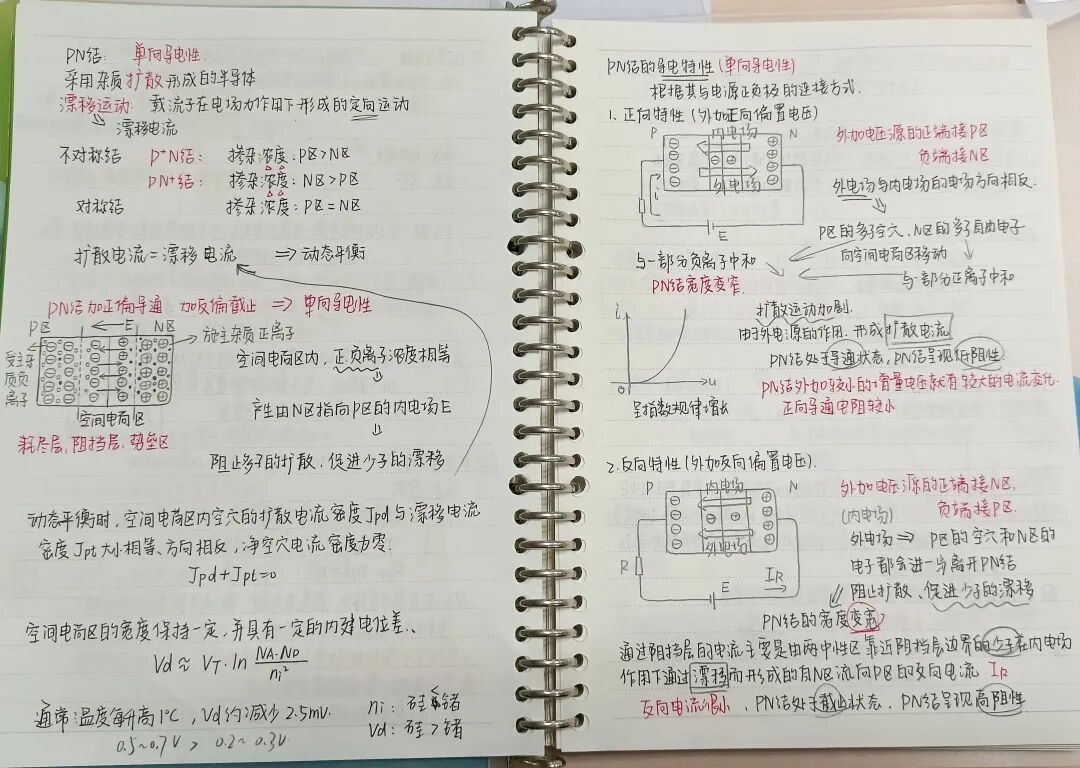 PN结: 单向导电性.
采用杂质扩散形成的半导体
漂移运动: 载流子在电场力作用下形成的定向运动
漂移电流
不对称结 P⁺N结: 掺杂浓度: P区>N区
PN⁺结: 掺杂浓度: N区>P区
对称结 掺杂浓度: P区=N区
扩散电流=漂移电流 ⇒动态平衡
PN结加正偏导通, 加反偏截止 ⇒ 单向导电性
P区 ←E N区
施主杂质正离子
受主杂质负离子
空间电荷区
耗尽层, 阻挡层, 势垒区
空间电荷区内, 正负离子浓度相等
⇓
产生由N区指向P区的内电场E
⇓
阻止多子的扩散, 促进少子的漂移
动态平衡时, 空间电荷区内空穴的扩散电流密度Jpd与漂移电流
密度Jpt大小相等、方向相反, 净空穴电流密度为零.
Jpd+Jpt=0
空间电荷区的宽度保持一定, 并具有一定的内建电位差.
Vd ≈ VT·ln NA·ND/ni²
通常: 温度每升高1℃, Vd约减少2.5mV.
0.5~0.7V > 0.2~0.3V
ni: 硅<锗
Vd: 硅>锗
PN结的导电特性(单向导电性)
根据其与电源正负极的连接方式.
1. 正向特性(外加正向偏置电压)
P 内电场 N
外电场
i
E
外加电压源的正端接P区
负端接N区
外电场与内电场的电场方向相反.
P区的多子空穴、N区的多子自由电子
向空间电荷区移动
与一部分负离子中和
与一部分正离子中和
PN结宽度变窄.
扩散运动加剧.
由于外电源的作用, 形成扩散电流
PN结处于导通状态, PN结呈现低阻性
PN结外加较小的增量电压就有较大的电流变化.
正向导通电阻较小
i
0 u
呈指数规律增长
2. 反向特性(外加反向偏置电压).
P 内电场 N
外电场
R E IR
外加电压源的正端接N区,
负端接P区.
(内电场)
外电场 ⇒ P区的空穴和N区的
电子都会进一步离开PN结
阻止扩散、促进少子的漂移
PN结的宽度变宽
通过阻挡层的电流主要是由两中性区靠近阻挡层边界的少子在内电场
作用下通过漂移而形成的自N区流向P区的反向电流 IR
反向电流很小, PN结处于截止状态, PN结呈现高阻性